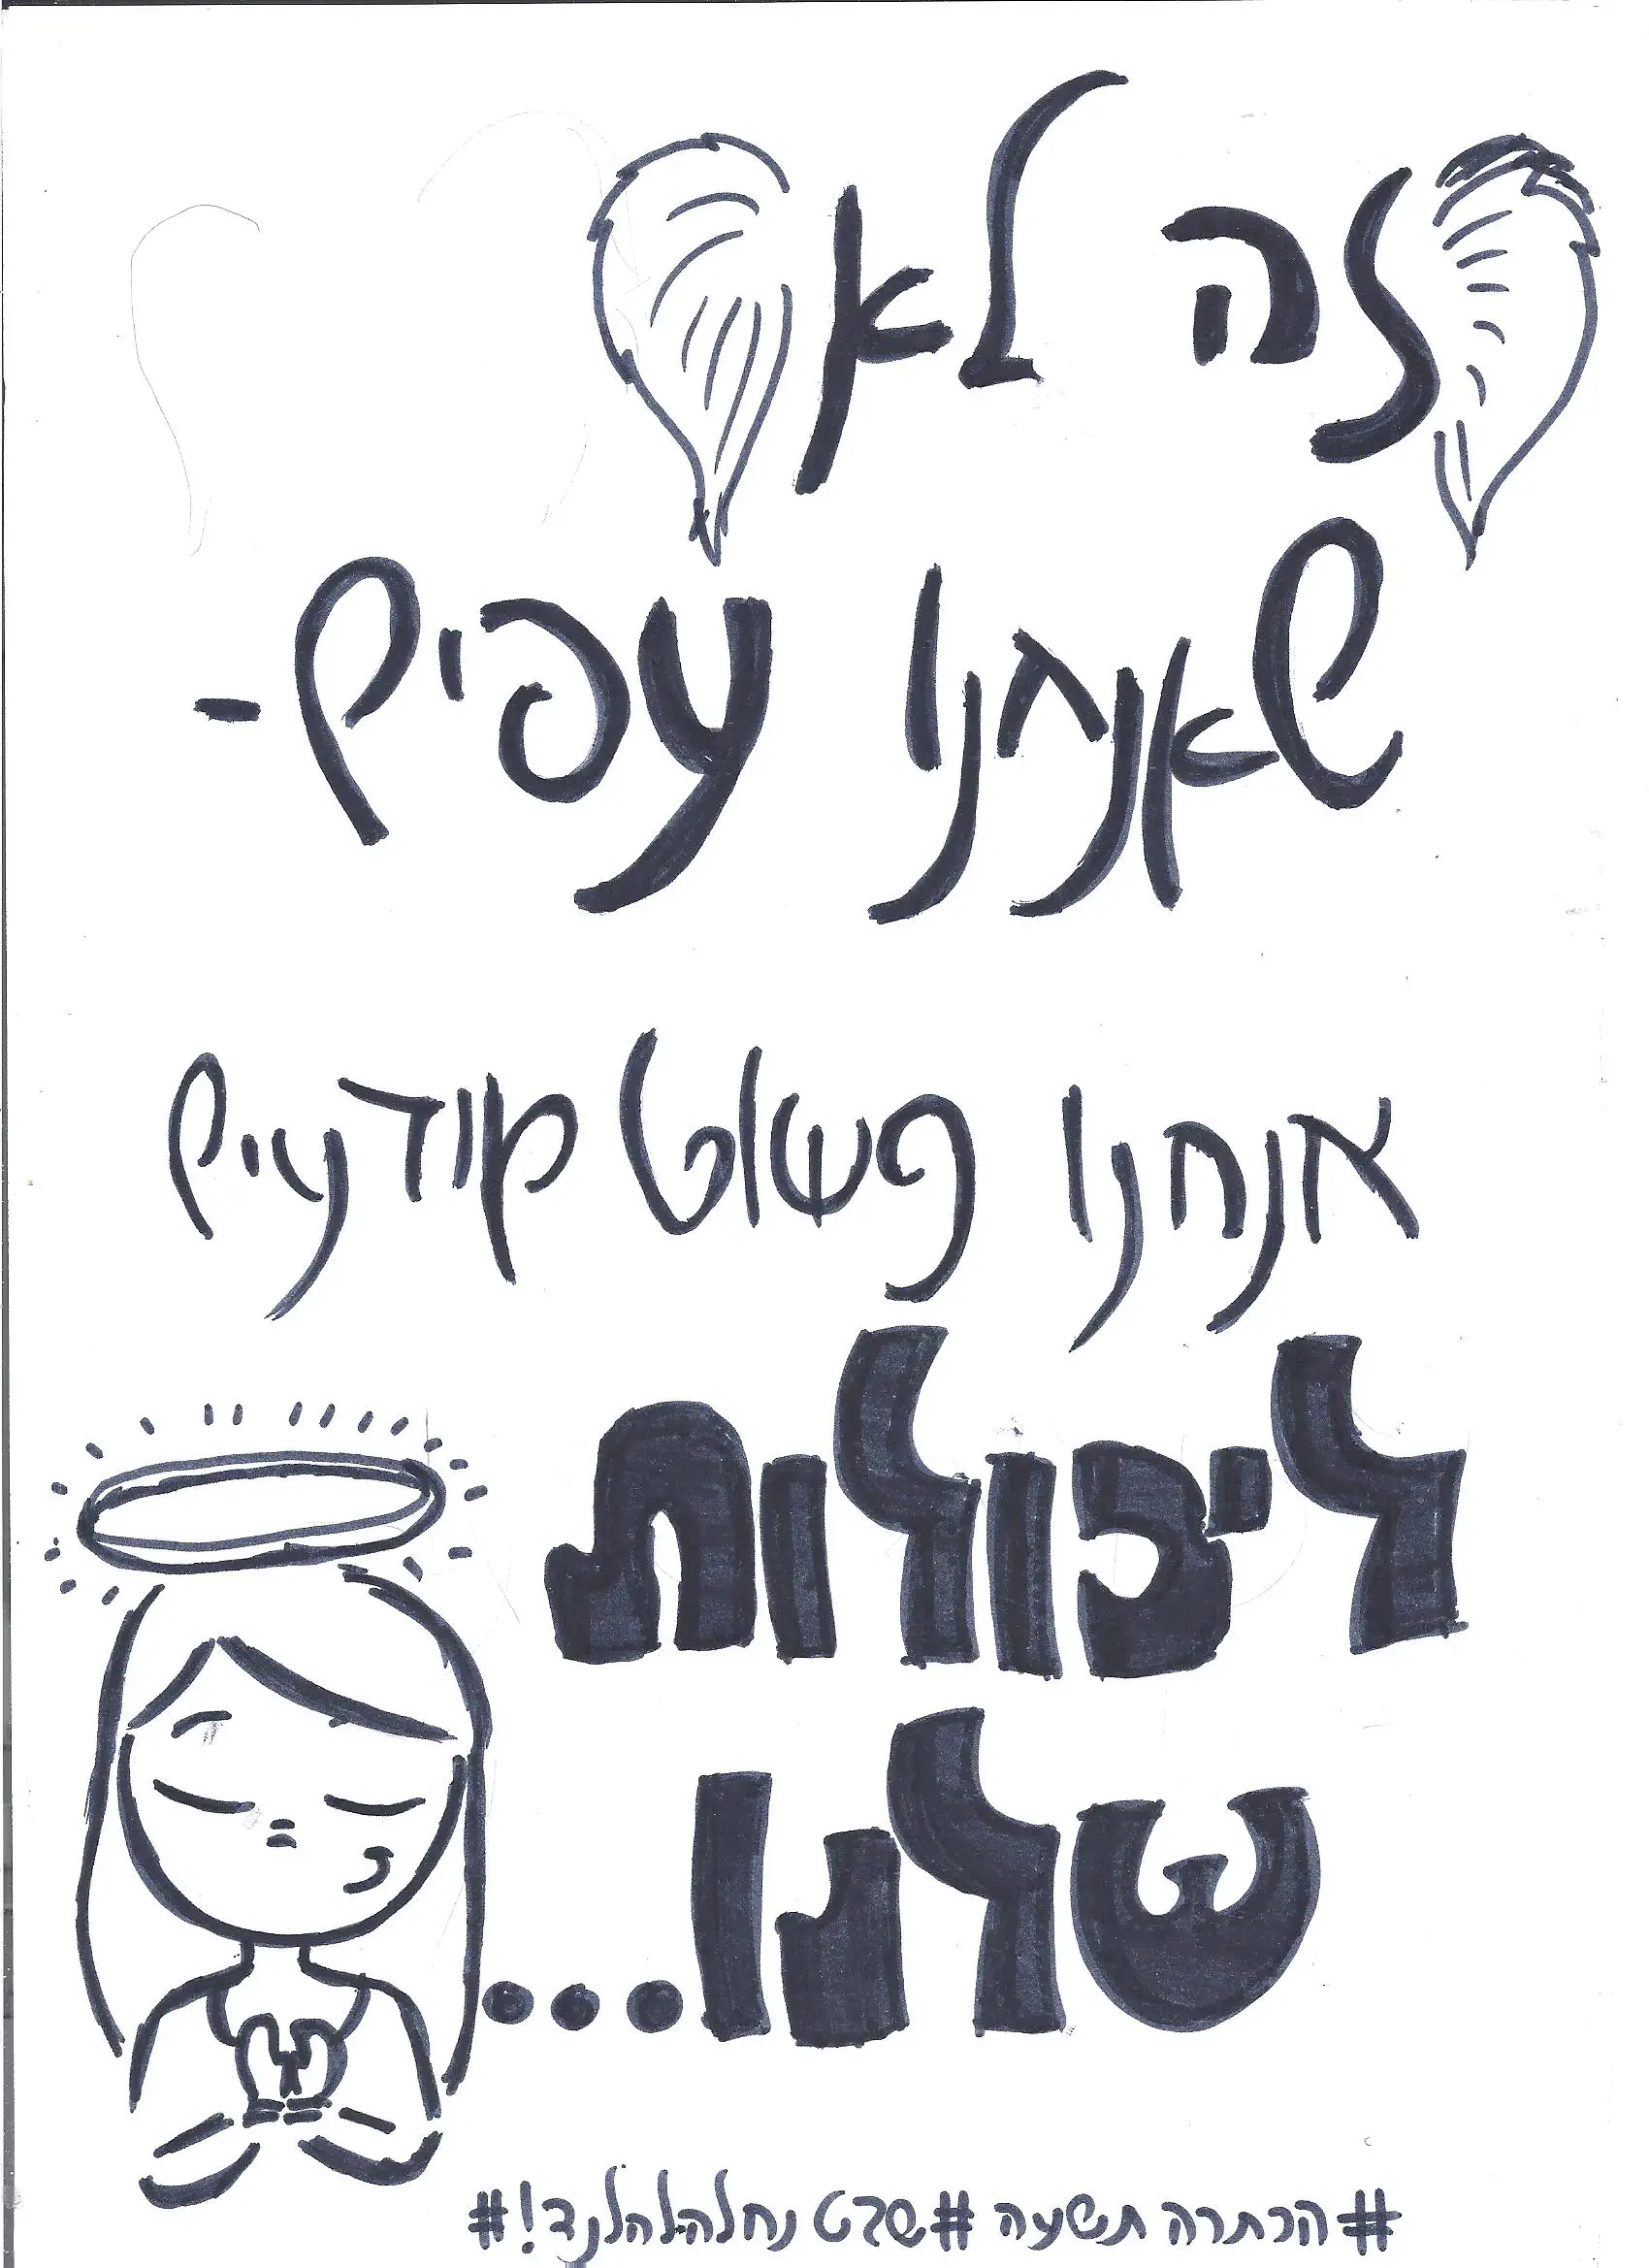 זה לא
שאנחנו עפים-
אנחנו פשוט מודעים
ליכולות
שלנו...
#הכתרה תשעה #שבט נחלהלהלנד!#